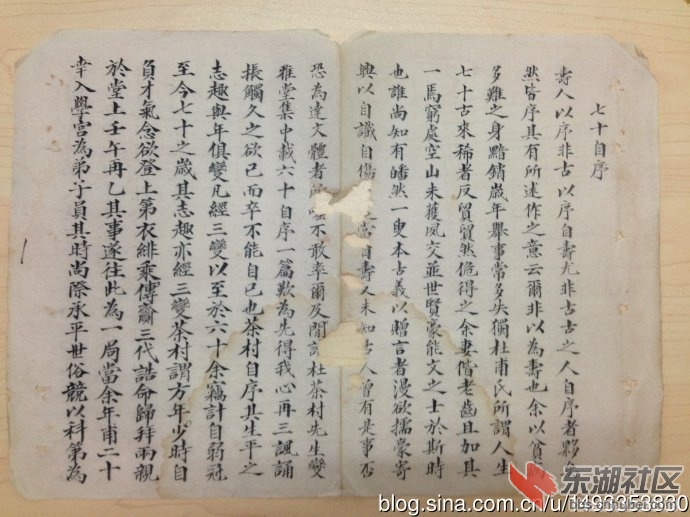 七十自序
壽人以序非古以序自壽尤非古古之人自序者夥
然皆序其有所述作之意云爾非以為壽也余以貧
多難之身黯銷歲年舉事常多失獨杜甫氏所謂人生
七十古來稀者反貿貿然倖得之余妻偕老齒且加其
一馬窮處空山未獲夙交並世賢豪能文之士於斯時
也誰尚知有皤然一叟本古義以贈言者漫欲擩豪寄
興以自識自傷 自壽人未知古人曾有是事否
恐為達文體者所 不敢率爾及閒 杜茶村先生變
雅堂集中載六十自序一篇歎為先得我心再三諷誦
振觸久之欲已而卒不能自已也茶村自序其生平之
志趣與年俱變凡經三變以至於六十余竊計自弱冠
至今七十之歲其志趣亦經三變茶村謂方年少時自
負才氣念欲登上第衣緋乘傳齎三代誥命歸拜兩親
於堂上壬午再乙其事遂往此為一局當余年甫二十
幸入學宮為弟子員其時尚際承平世俗競以科第為
东湖社区
blog.sina.com.cn/u/1496353830